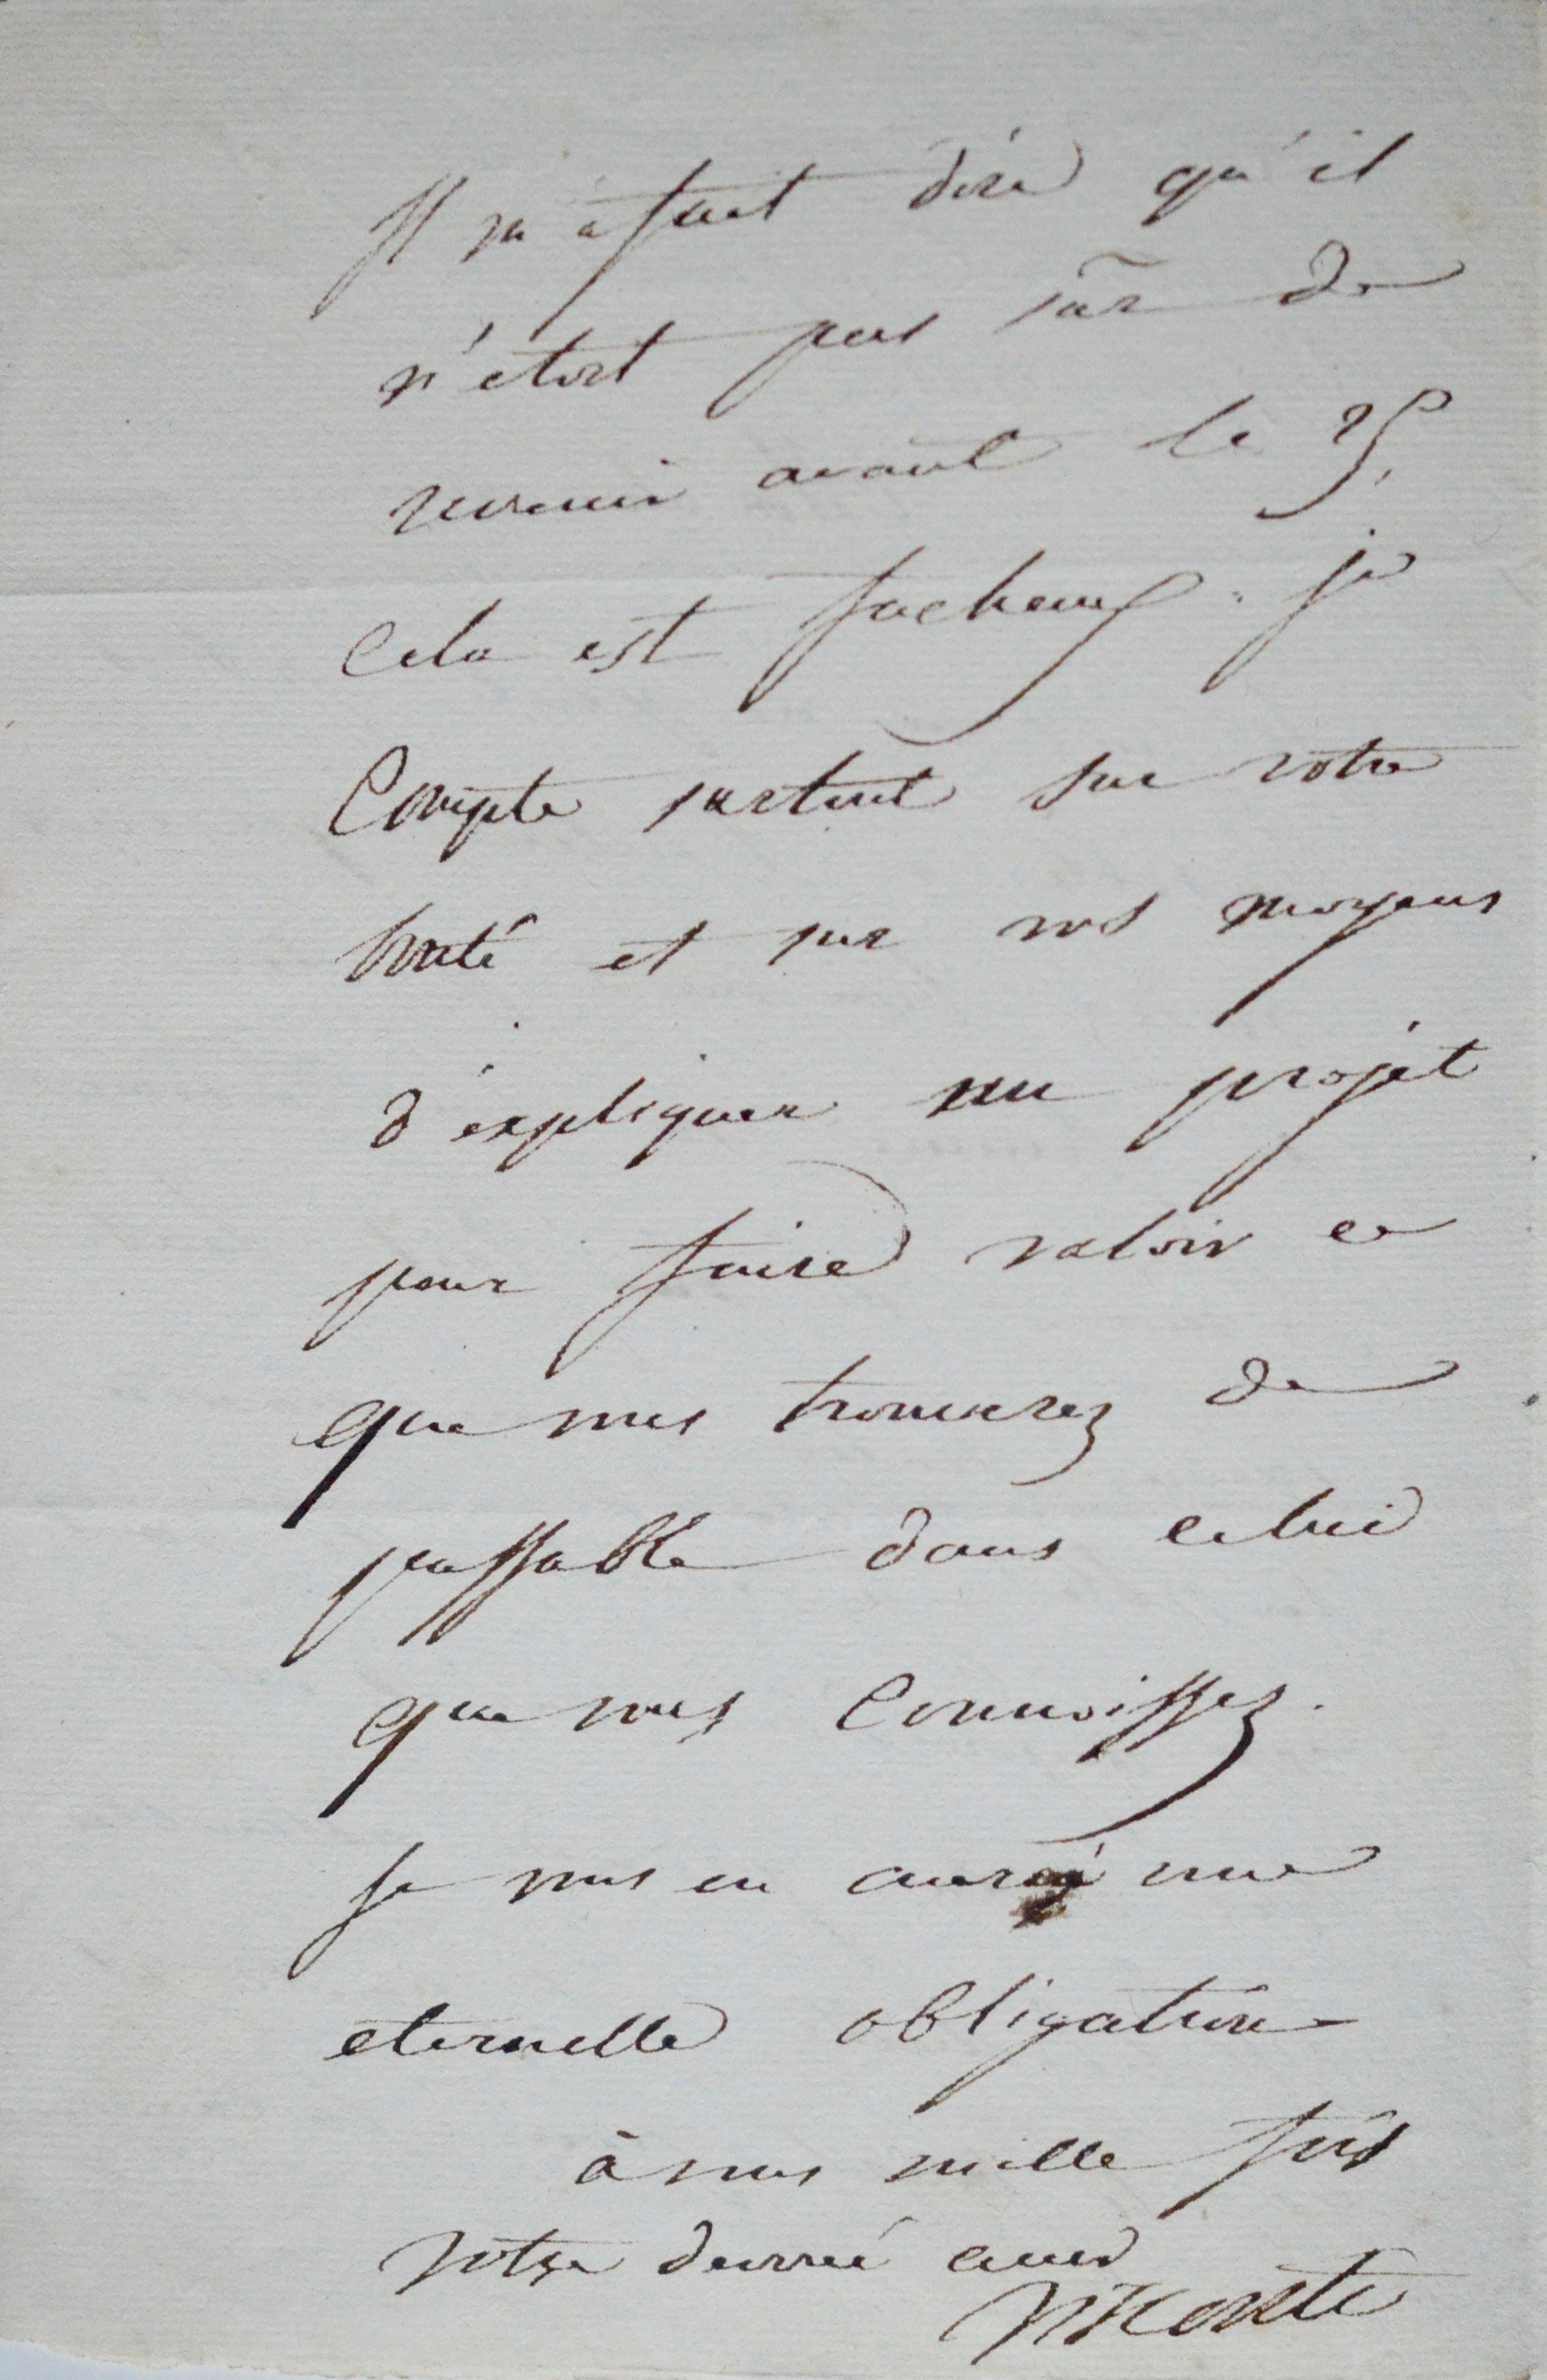 Il m'a fait dire qu'il
n'etoit pas sûr de
revenir avant le 25.
Cela est facheux. je
Compte surtout sur votre
bonté et sur vos moyens
d'expliquer un projet
pour faire valoir ce
que vous trouverez de
passable dans celui
que vous Connoissez.
je vous en aurai une
eternelle obligation
à vous mille fois
votre devoué